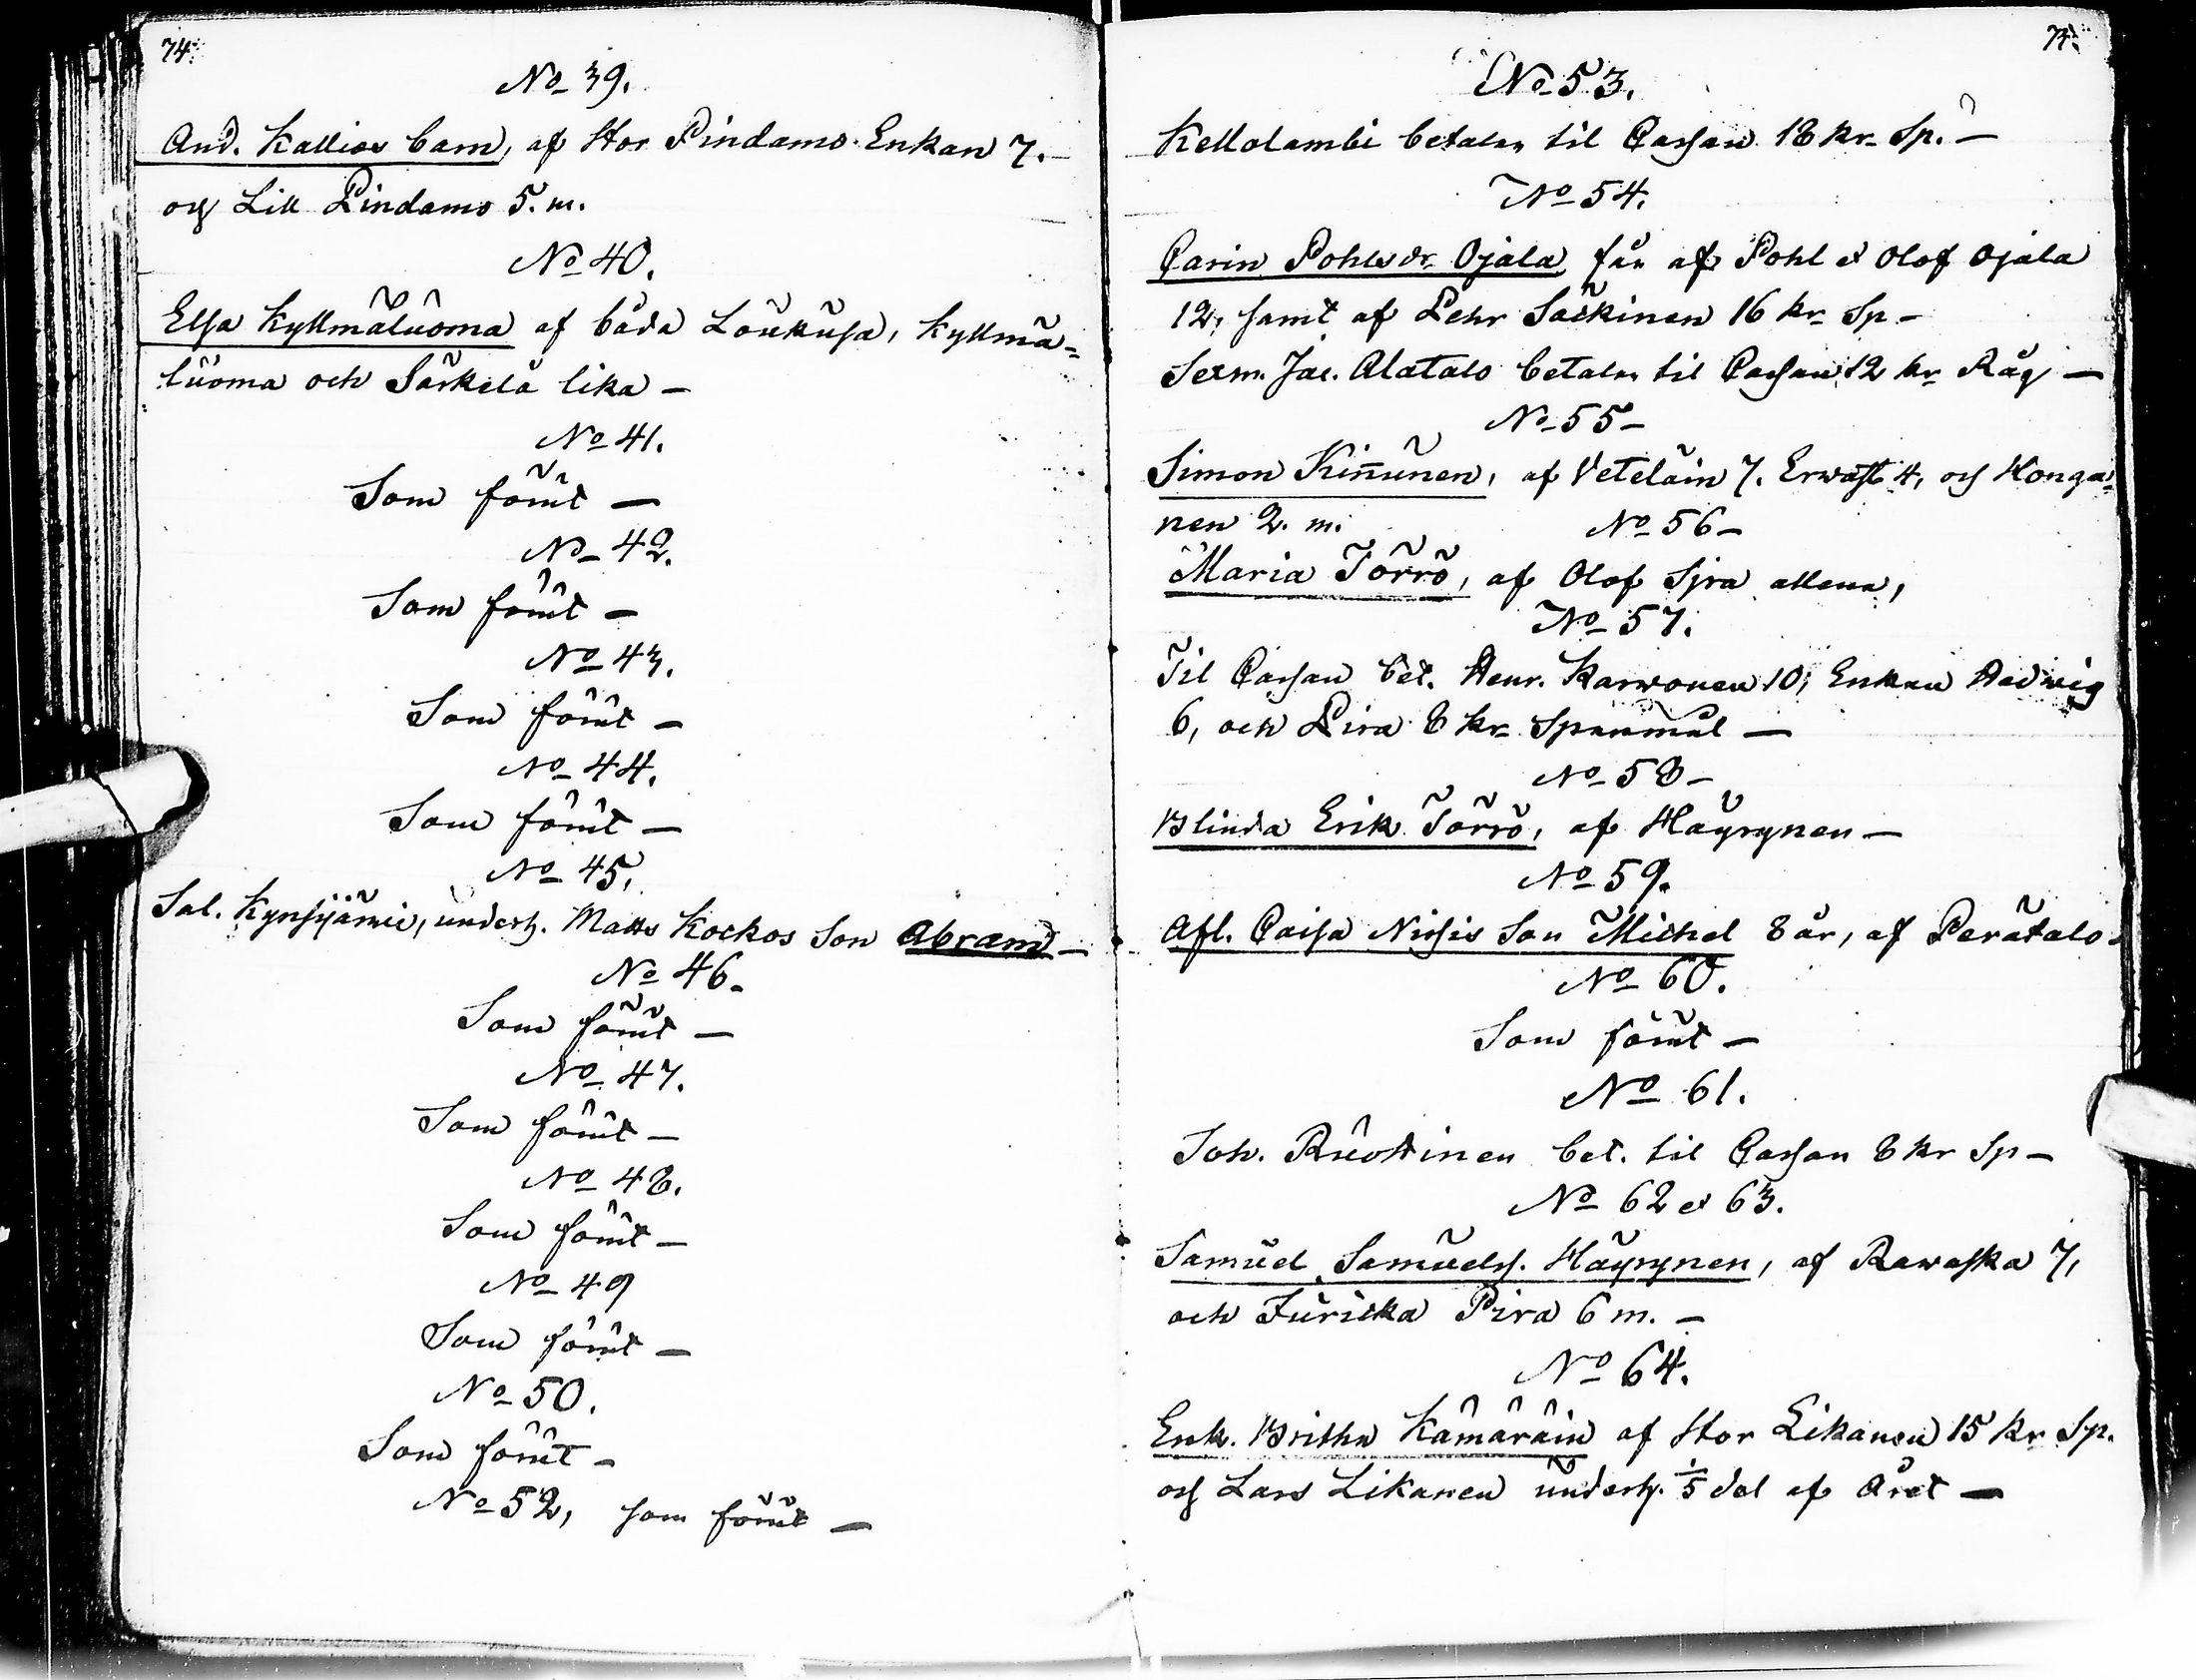 74.
No 39.
And. Kallios barn, af Stor Pindamo Enkan 7.
och Lill Pindamo 5. m.
No 40.
Elsa Kyllmäluoma af båda Loukusa, Kyllmä=
luoma och Särkelä lika —
No 41.
Som förut —
No 42.
Som förut —
No 43.
Som förut —
No 44.
Som förut —
No 45.
Sal. Kynsijämie, underh. Matts Kockos Son Abram —
No 46.
Som förut —
No 47.
Som förut —
No 48.
Som förut —
No 49
Som förut —
No 50.
Som förut —
No 52, som förut —
No 53.
Kellolambi betalar til Cassan 18 kr Sp. —
No 54.
Carin Pohlsdr Ojala får af Pohl et Olof Ojala
12, samt af Pehr Säckinen 16 kr Sp —
Sexm. Jac. Alatalo betalar til Cassan 12 kr Råg —
No 55 —
Simon Kinnunen, af Veteläin 7. Erwast 4, och Honga=
nen 2. m.
No 56 —
Maria Törrö, af Olof Sjra allena,
No 57.
Til Cassan bet. Henr. Karwonen 10, Enkan Hedwig
6, och Pira 8 kr Spanmål —
No 58 —
Blinda Erik Törrö, af Häyrynen —
No 59.
Afl. Caisa Nissis Son Michel 8 år, af Perätalo.
No 60.
Som förut —
No 61.
Joh. Ruottinen bet. til Cassan 8 kr Sp —
No 62 et 63.
Samuel Samuelss. Häyrynen, af Rawaska 7,
och Juricka Pira 6 m. —
No 64.
Enk. Britha Kämäräin af Stor Likanen 15 kr Sp.
och Lars Likanen underh. 1/5 del af Året —